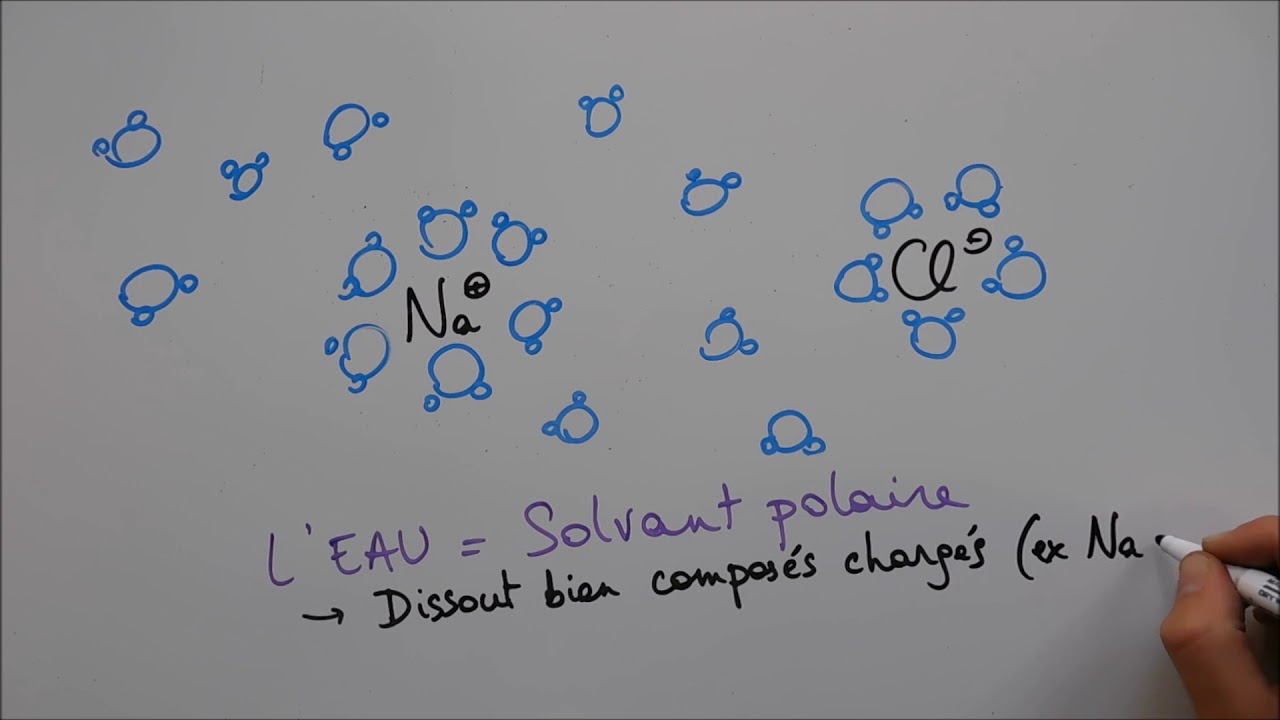 Na⊕
Cl⊖
L'EAU = Solvant polaire
→ Dissout bien composés chargés (ex Na